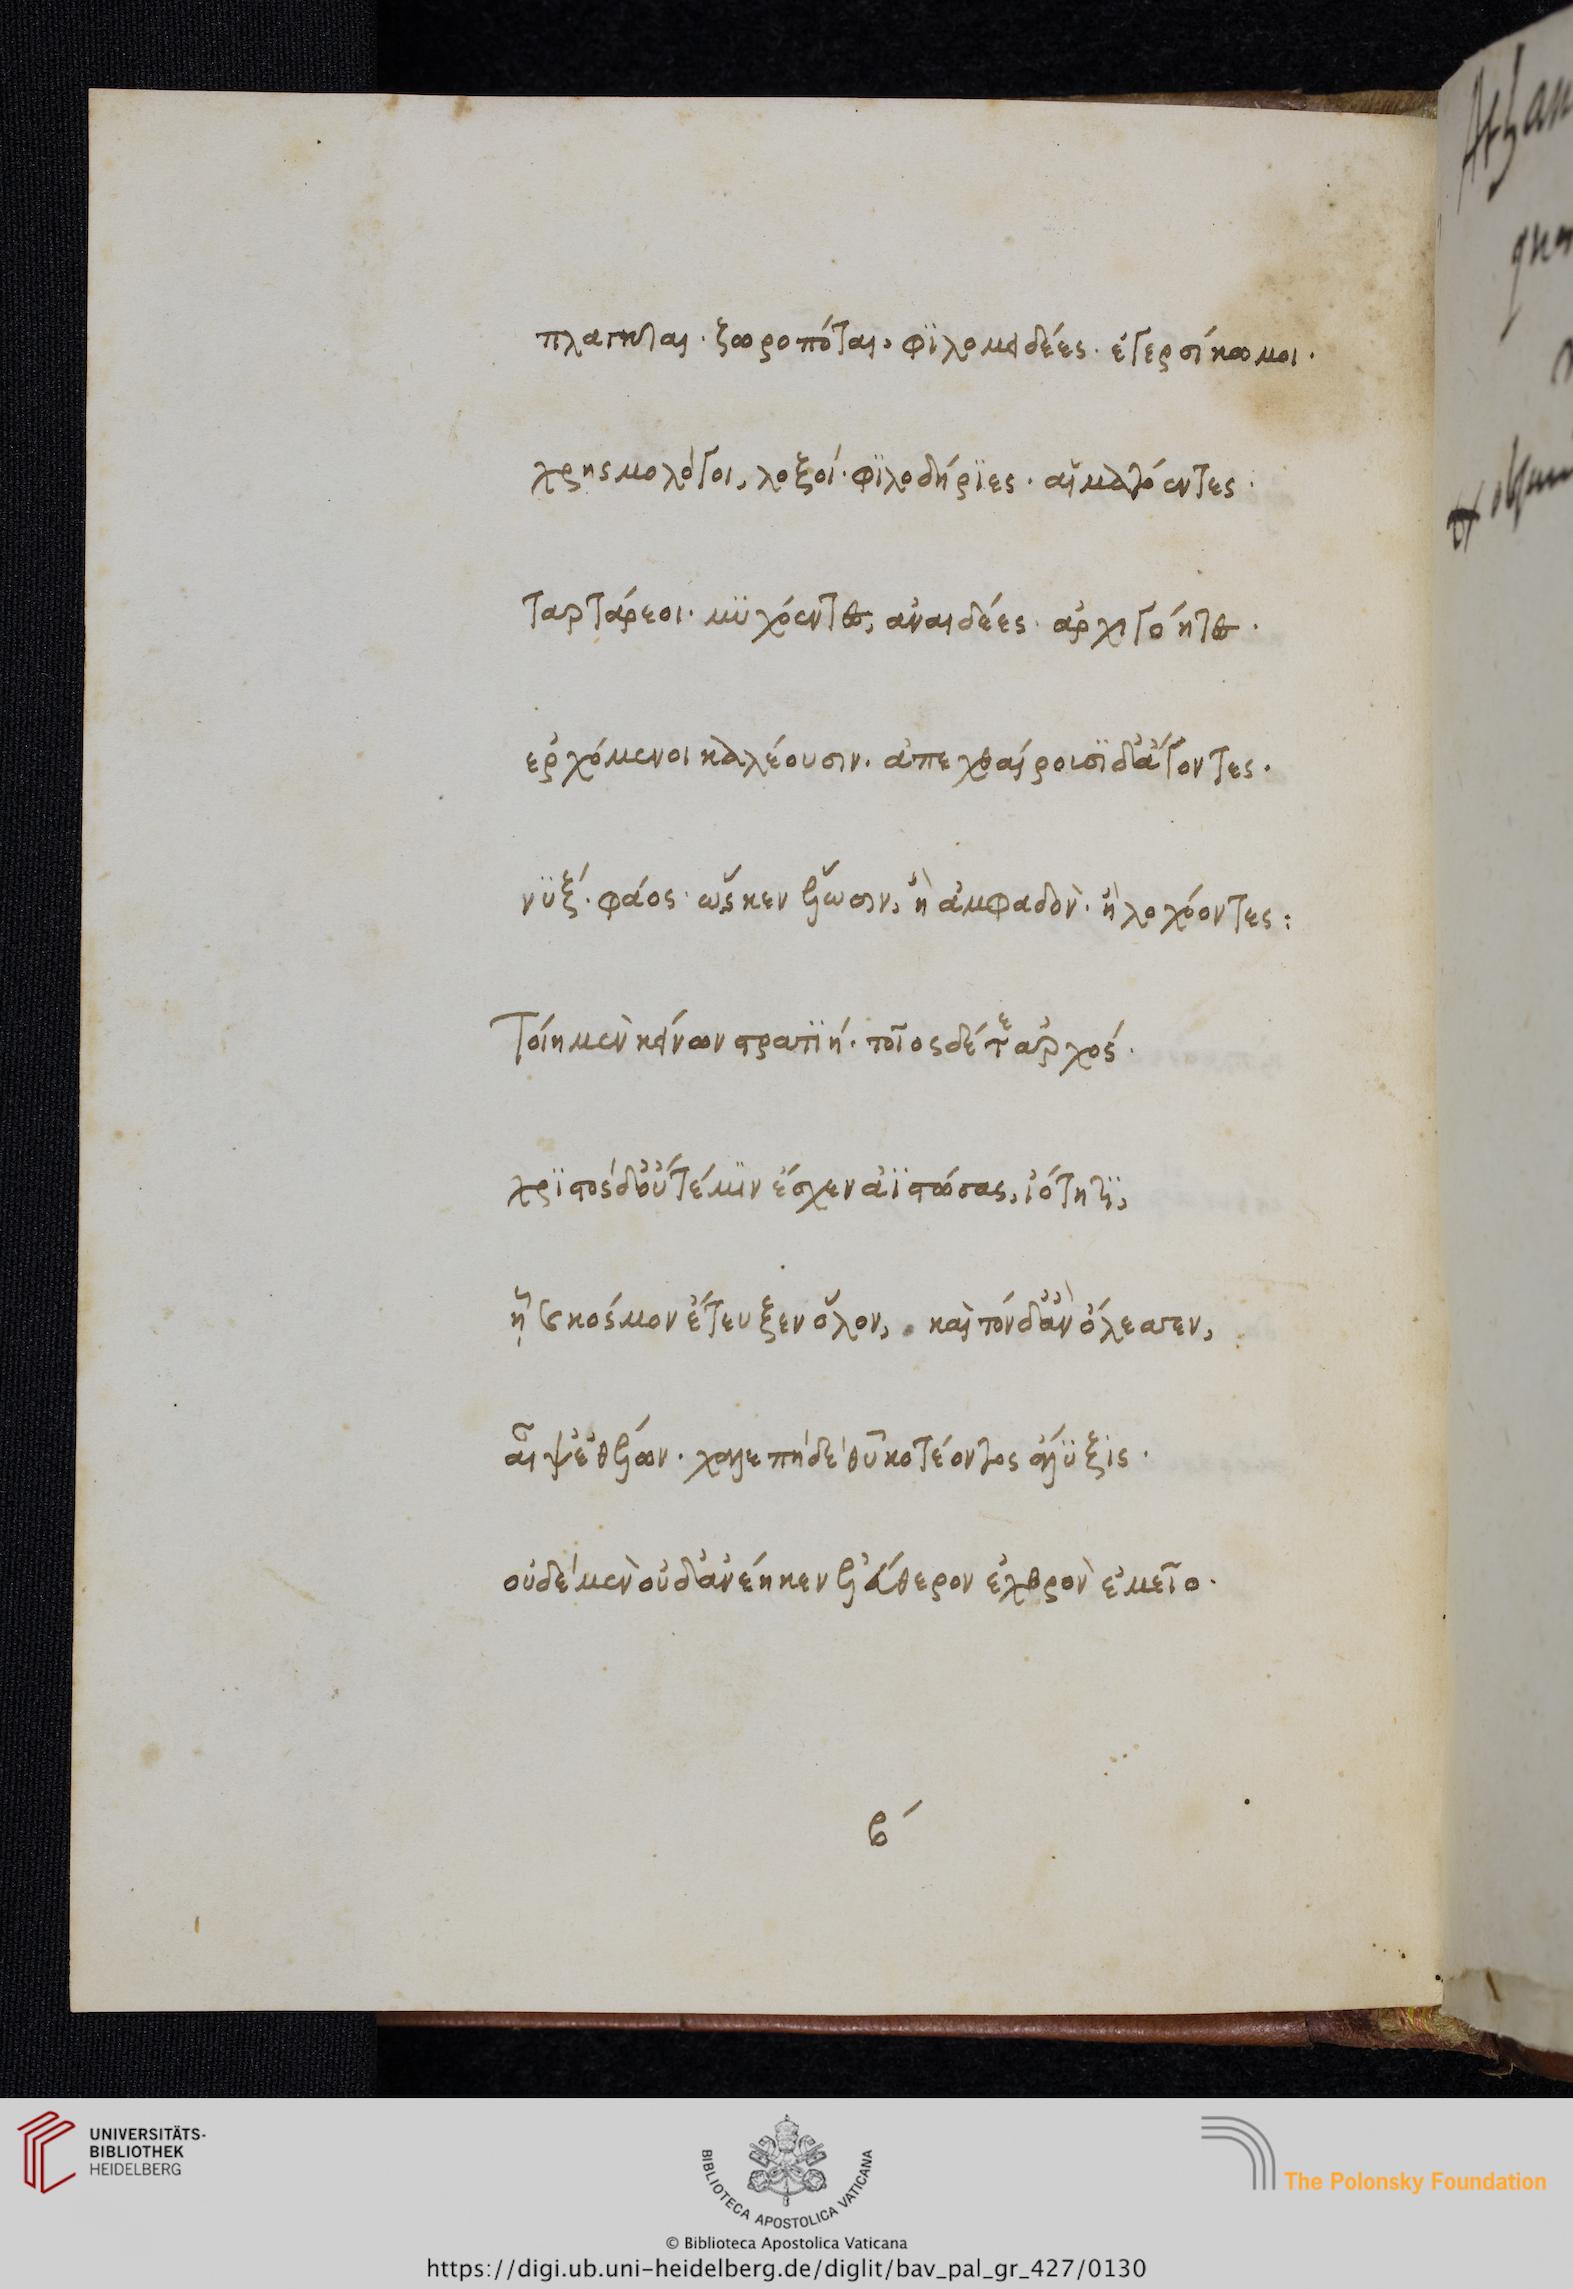 πλαγκται· ζωροπόται, φϊλομειδέες· ἐγερσίκωμοι·
χρησμολόγοι, λοξοί· φϊλοδήρϊες· αἱματόεντες·
ταρτάρεοι· μϋχόεντες, ἀναιδέες· ἀρχιγόητες·
ἐρχόμενοι καλέουσιν· ἀπεχθαίροισϊ δ' ἄγοντες·
νϋξ· φάος· ὥς κεν ζῶσιν, ἢ ἀμφαδὸν· ἢ λοχόοντες:
Τοίη μὲν κείνων στρατϊή· τοῖος δέ τε ἀρχός·
χρϊστὸς δ' οὔτέ μϊν ἔσχεν ἀϊστώσας, ἰότητϊ,
ᾗ κόσμον ἔτευξεν ὅλον, καὶ τόνδ' ἂν ὄλεσσεν,
αἶψ' ἐθέλων· χαλεπὴ δὲ θῦ κοτέοντος ἄλϋξϊς·
οὐδὲ μὲν οὐδ' ἀνέηκεν ἐλεύθερον ἐχθρὸν ἐμεῖο·
β´
Athan
quen
UNIVERSITÄTS-
BIBLIOTHEK
HEIDELBERG
BIBLIOTECA APOSTOLICA VATICANA
The Polonsky Foundation
© Biblioteca Apostolica Vaticana
https://digi.ub.uni-heidelberg.de/diglit/bav_pal_gr_427/0130